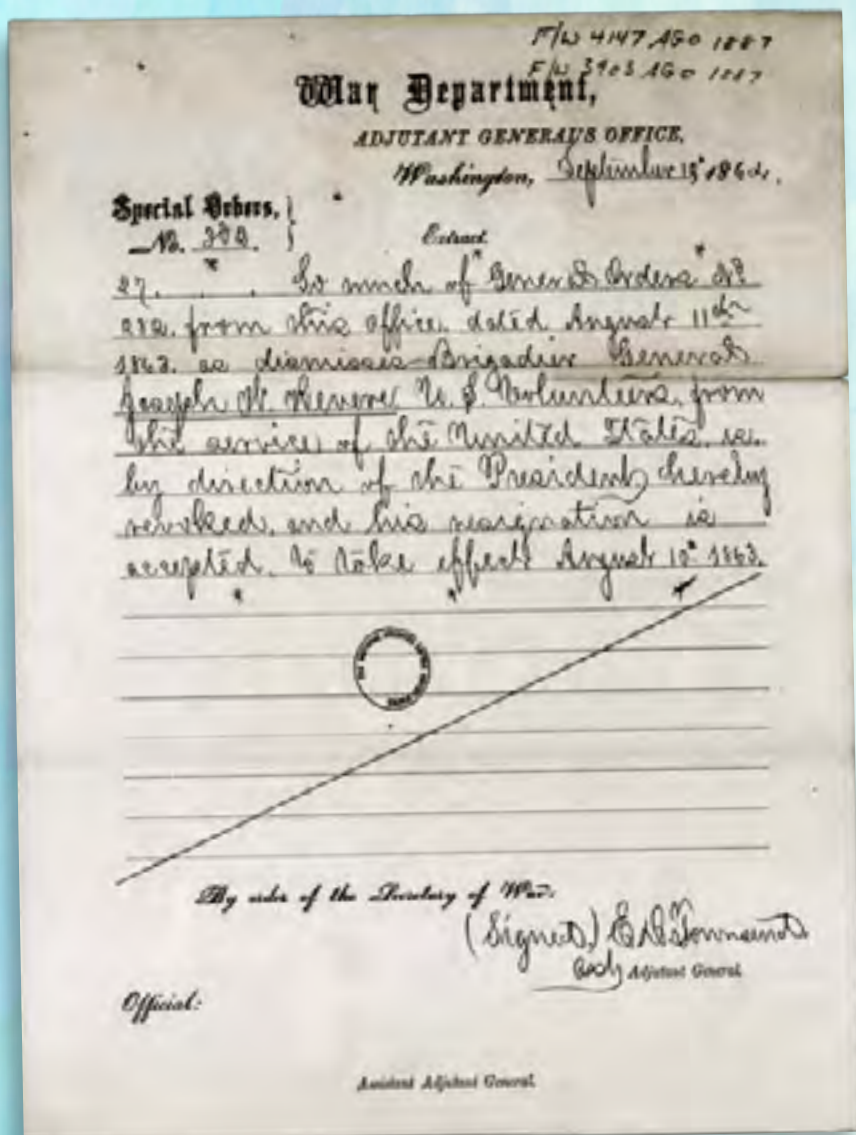 F/W 4147 AGO 1887
F/W 3903 AGO 1887
War Department,
ADJUTANT GENERAL'S OFFICE,
Washington, September 1864.
Special Orders,
No.
Extract.
27. . . So much of "General Orders" No
282. from this office, dated August 11th
1863. as dismisses Brigadier General
Joseph W. Revere U. S. Volunteers, from
the service of the United States, is
by direction of the President, hereby
revoked, and his resignation is
accepted, to take effect August 10" 1863.
By order of the Secretary of War:
(Signed) E D Townsend
Adjutant General.
Official:
Assistant Adjutant General.